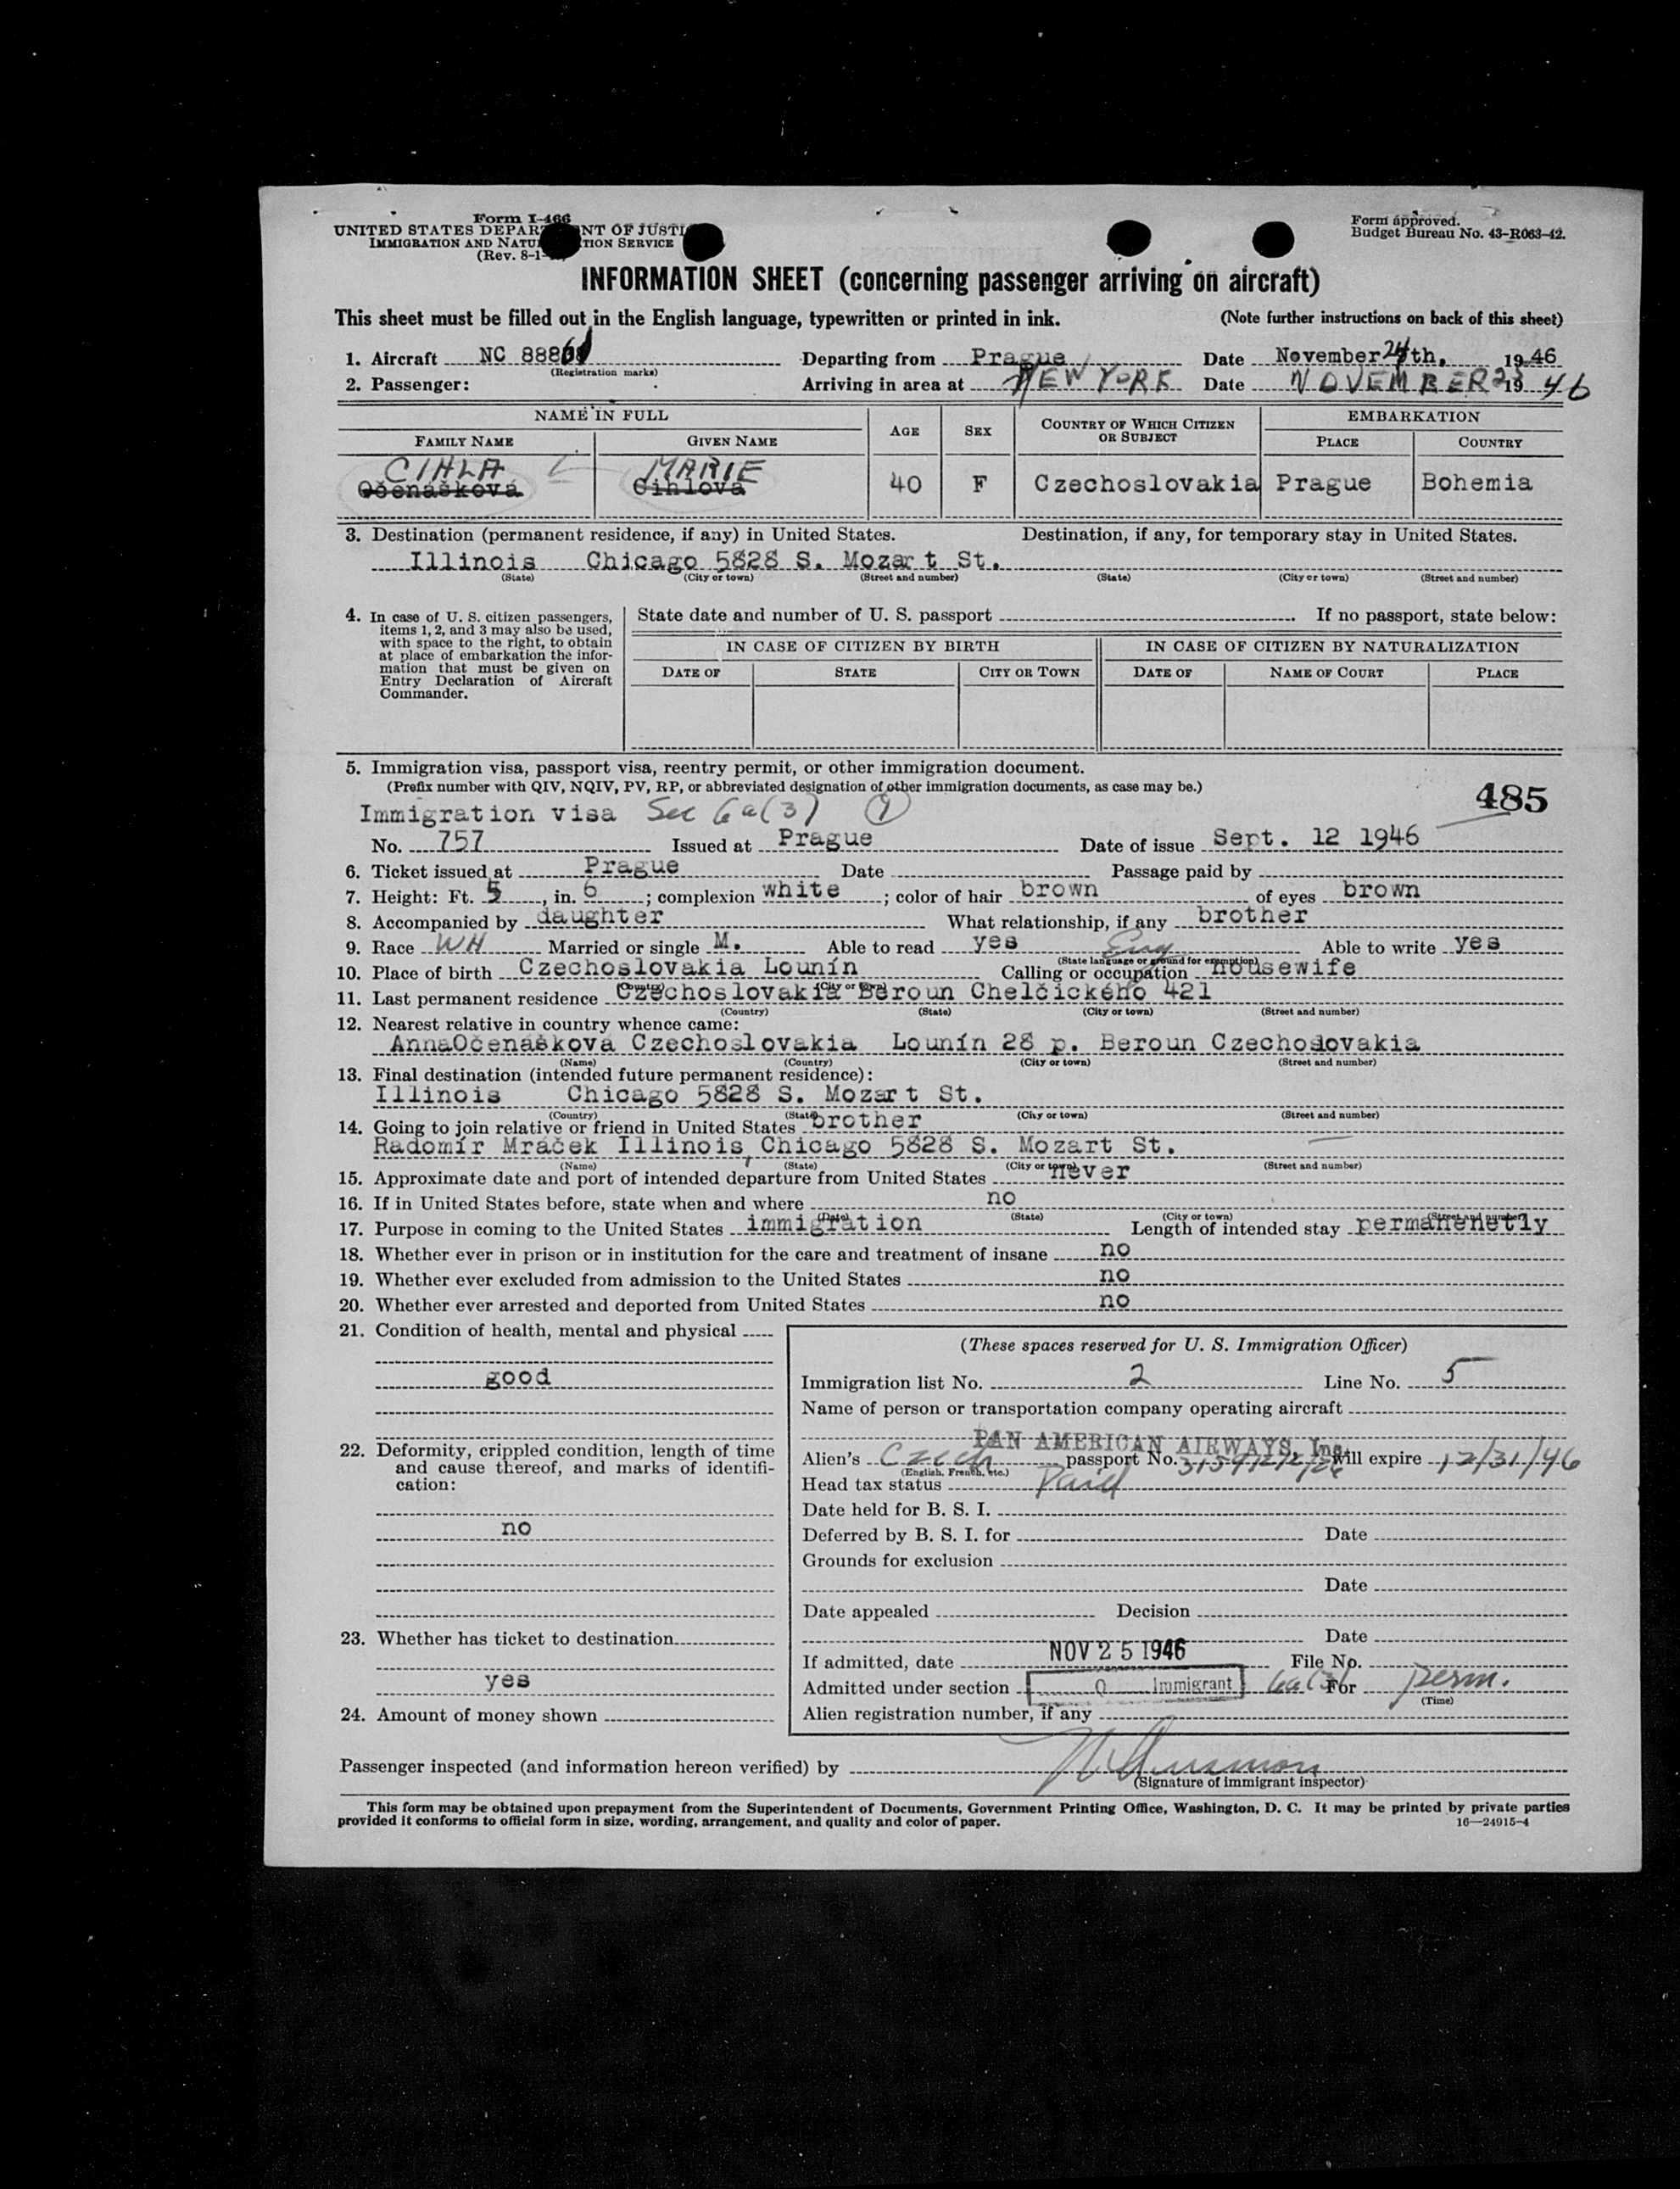 Form I-466
UNITED STATES DEPAR NT OF JUSTI
IMMIGRATION AND NATU TION SERVICE
(Rev. 8-1-
Form approved.
Budget Bureau No. 43-R063-42.
INFORMATION SHEET (concerning passenger arriving on aircraft)
This sheet must be filled out in the English language, typewritten or printed in ink. (Note further instructions on back of this sheet)
1. Aircraft NC 88861 Departing from Prague Date November 24th, 1946
(Registration marks)
2. Passenger: Arriving in area at NEW YORK Date NOVEMBER 1946
NAME IN FULL AGE SEX COUNTRY OF WHICH CITIZEN OR SUBJECT EMBARKATION
FAMILY NAME GIVEN NAME PLACE COUNTRY
CIHLA MARIE
Očenášková Cihlova 40 F Czechoslovakia Prague Bohemia
3. Destination (permanent residence, if any) in United States. Destination, if any, for temporary stay in United States.
Illinois Chicago 5828 S. Mozart St.
(State) (City or town) (Street and number) (State) (City or town) (Street and number)
4. In case of U. S. citizen passengers, items 1, 2, and 3 may also be used, with space to the right, to obtain at place of embarkation the information that must be given on Entry Declaration of Aircraft Commander.
State date and number of U. S. passport . If no passport, state below:
IN CASE OF CITIZEN BY BIRTH IN CASE OF CITIZEN BY NATURALIZATION
DATE OF STATE CITY OR TOWN DATE OF NAME OF COURT PLACE
5. Immigration visa, passport visa, reentry permit, or other immigration document.
(Prefix number with QIV, NQIV, PV, RP, or abbreviated designation of other immigration documents, as case may be.)
485
Immigration visa Sec 6a(3)
No. 757 Issued at Prague Date of issue Sept. 12 1946
6. Ticket issued at Prague Date Passage paid by
7. Height: Ft. 5, in. 6; complexion white; color of hair brown of eyes brown
8. Accompanied by daughter What relationship, if any brother
9. Race WH Married or single M. Able to read yes Eng Able to write yes
(State language or ground for exemption)
10. Place of birth Czechoslovakia Lounín Calling or occupation housewife
(Country) (City or town)
11. Last permanent residence Czechoslovakia Beroun Chelčického 421
(Country) (State) (City or town) (Street and number)
12. Nearest relative in country whence came:
AnnaOčenáškova Czechoslovakia Lounín 28 p. Beroun Czechoslovakia
(Name) (Country) (City or town) (Street and number)
13. Final destination (intended future permanent residence):
Illinois Chicago 5828 S. Mozart St.
(Country) (State) (City or town) (Street and number)
14. Going to join relative or friend in United States brother
Radomír Mráček Illinois, Chicago 5828 S. Mozart St.
(Name) (State) (City or town) (Street and number)
15. Approximate date and port of intended departure from United States never
16. If in United States before, state when and where no
(Date) (State) (City or town) (Street and number)
17. Purpose in coming to the United States immigration Length of intended stay permanenetly
18. Whether ever in prison or in institution for the care and treatment of insane no
19. Whether ever excluded from admission to the United States no
20. Whether ever arrested and deported from United States no
21. Condition of health, mental and physical
good
22. Deformity, crippled condition, length of time and cause thereof, and marks of identification:
no
23. Whether has ticket to destination
yes
24. Amount of money shown
(These spaces reserved for U. S. Immigration Officer)
Immigration list No. 2 Line No. 5
Name of person or transportation company operating aircraft
PAN AMERICAN AIRWAYS, Inc.
Alien's Czech passport No. Will expire 12/31/46
(English, French, etc.)
Head tax status Paid
Date held for B. S. I.
Deferred by B. S. I. for Date
Grounds for exclusion
Date
Date appealed Decision
Date
If admitted, date NOV 25 1946 File No.
Admitted under section Q Immigrant 6a(3) For perm.
(Time)
Alien registration number, if any
Passenger inspected (and information hereon verified) by
(Signature of immigrant inspector)
This form may be obtained upon prepayment from the Superintendent of Documents, Government Printing Office, Washington, D. C. It may be printed by private parties
provided it conforms to official form in size, wording, arrangement, and quality and color of paper. 16—24915-4